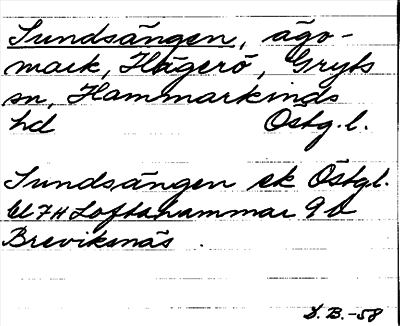 Sundsängen, ägo-
mark, Hägerö, Gryts
sn, Hammarkinds
hd Östg.l.
Sundsängen ek Östgl.
bl 7H Loftahammar 9 b
Breviksnäs.
D.B.-58